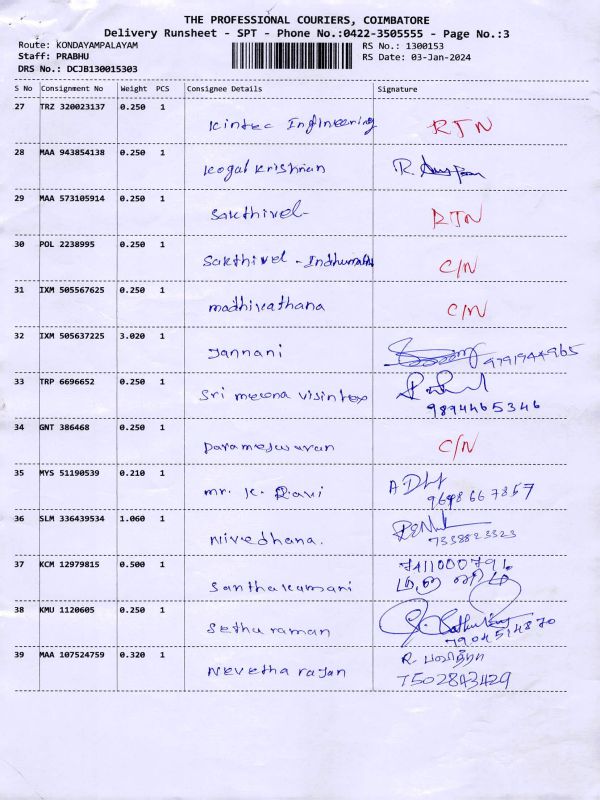 THE PROFESSIONAL COURIERS, COIMBATORE
Delivery Runsheet - SPT - Phone No.:0422-3505555 - Page No.:3
Route: KONDAYAMPALAYAM RS No.: 1300153
Staff: PRABHU RS Date: 03-Jan-2024
DRS No.: DCJB130015303
S No Consignment No Weight PCS Consignee Details Signature
27 TRZ 320023137 0.250 1
Kintec Engineering RTN
28 MAA 943854138 0.250 1
Kogal Krishnan R.
29 MAA 573105914 0.250 1
Sakthivel- RTN
30 POL 2238995 0.250 1
Sakthivel - Indhumathi C/N
31 IXM 505567625 0.250 1
madhivathana C/N
32 IXM 505637225 3.020 1
Jannani 9791944965
33 TRP 6696652 0.250 1
Sri meena visintex
9894465346
34 GNT 386468 0.250 1
Parameswaran C/N
35 MYS 51190539 0.210 1
mr. K. Ravi
36 SLM 336439534 1.060 1
Nivedhana. 7338823323
37 KCM 12979815 0.500 1 7411000796
Santhakumari
38 KMU 1120605 0.250 1
Sethu raman 7904514870
39 MAA 107524759 0.320 1
Nevetha rajan 7502843429